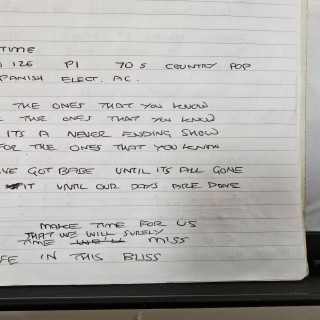 TIME
126 P1 70S COUNTRY POP
PANISH ELECT. AC.
THE ONES THAT YOU KNOW
THE ONES THAT YOU KNOW
ITS A NEVER ENDING SHOW
FOR THE ONES THAT YOU KNOW
VE GOT BABE UNTIL ITS ALL GONE
IT UNTIL OUR DAYS ARE DONE
MAKE TIME FOR US
THAT WE WILL SURELY
TIME WE'LL MISS
FE IN THIS BLISS